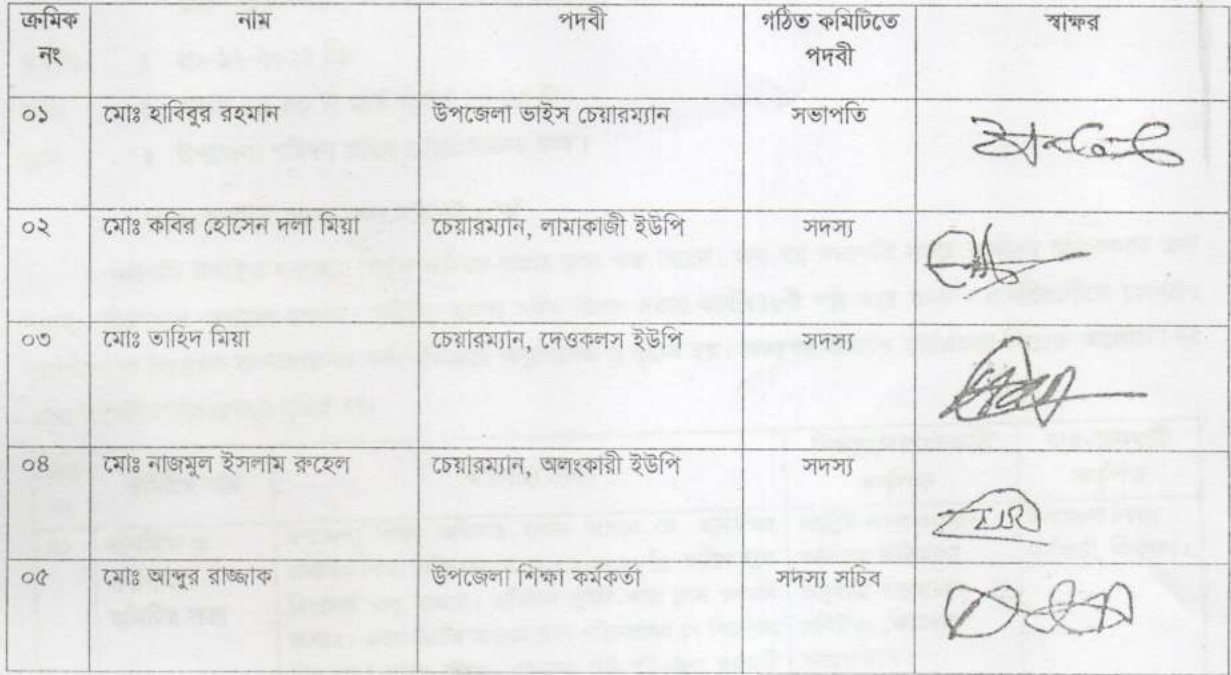 ক্রমিক নং | নাম | পদবী | গঠিত কমিটিতে পদবী | স্বাক্ষর
০১ | মোঃ হাবিবুর রহমান | উপজেলা ভাইস চেয়ারম্যান | সভাপতি
০২ | মোঃ কবির হোসেন দলা মিয়া | চেয়ারম্যান, লামাকাজী ইউপি | সদস্য
০৩ | মোঃ তাহিদ মিয়া | চেয়ারম্যান, দেওকলস ইউপি | সদস্য
০৪ | মোঃ নাজমুল ইসলাম রুহেল | চেয়ারম্যান, অলংকারী ইউপি | সদস্য
০৫ | মোঃ আব্দুর রাজ্জাক | উপজেলা শিক্ষা কর্মকর্তা | সদস্য সচিব